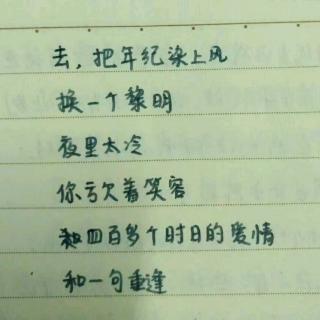 去，把年纪染上风
换一个黎明
夜里太冷
你亏欠着笑容
和四百多个时日的爱情
和一句重逢